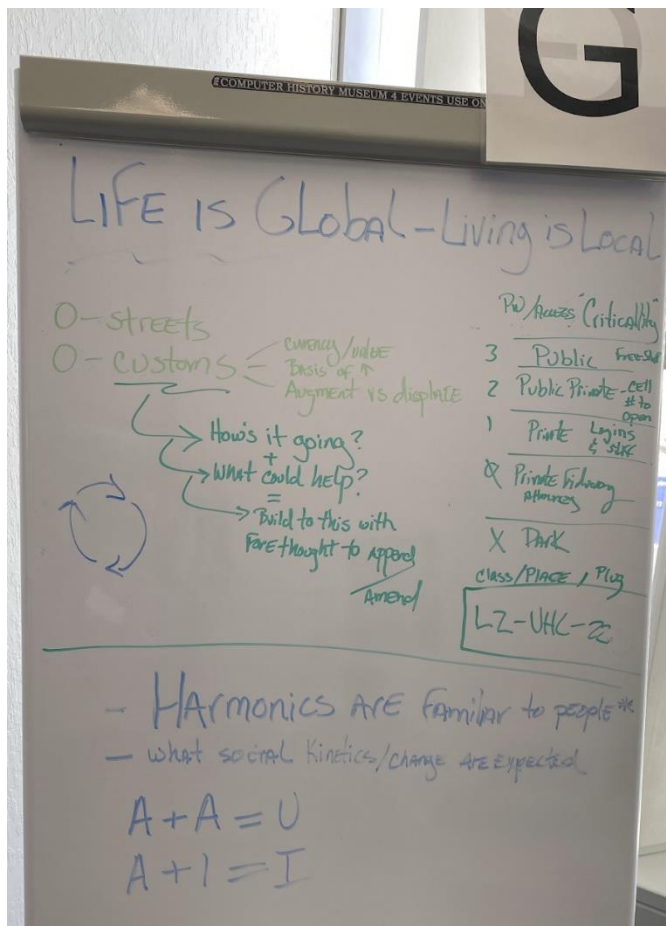 G
COMPUTER HISTORY MUSEUM 4 EVENTS USE ON
LIFE IS GLObAL - Living is LOCAL
O - streets
O - customs
currency/value
Basis of ↑
Augment vs displace
How's it going?
+
What could help?
=
Build to this with
Forethought to Append
/ Amend
PW/Access "Criticality"
3 Public
2 Public Private - cell
# to
open
1 Private Logins
&
0 Private Fiduciary
Attorney
X DARK
Class/PLACE, Plug
LZ-VHC-2C
- HArmonics ARE familiar to people*
- what social Kinetics/change are expected
A+A=U
A+1=I